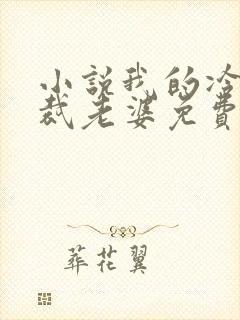 小説我的冷
裁老婆免費
葬花翼